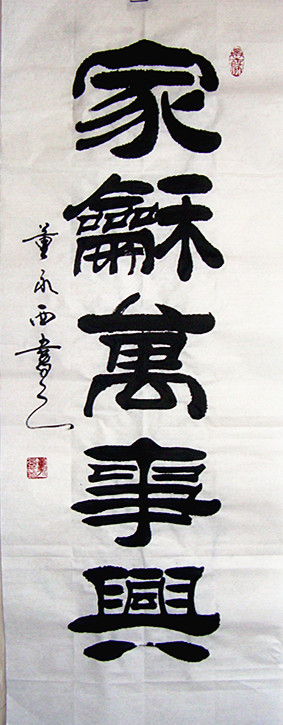 家龢萬事興
董永西書